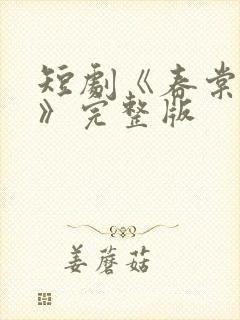 短劇《春棠
》完整版
姜蘑菇